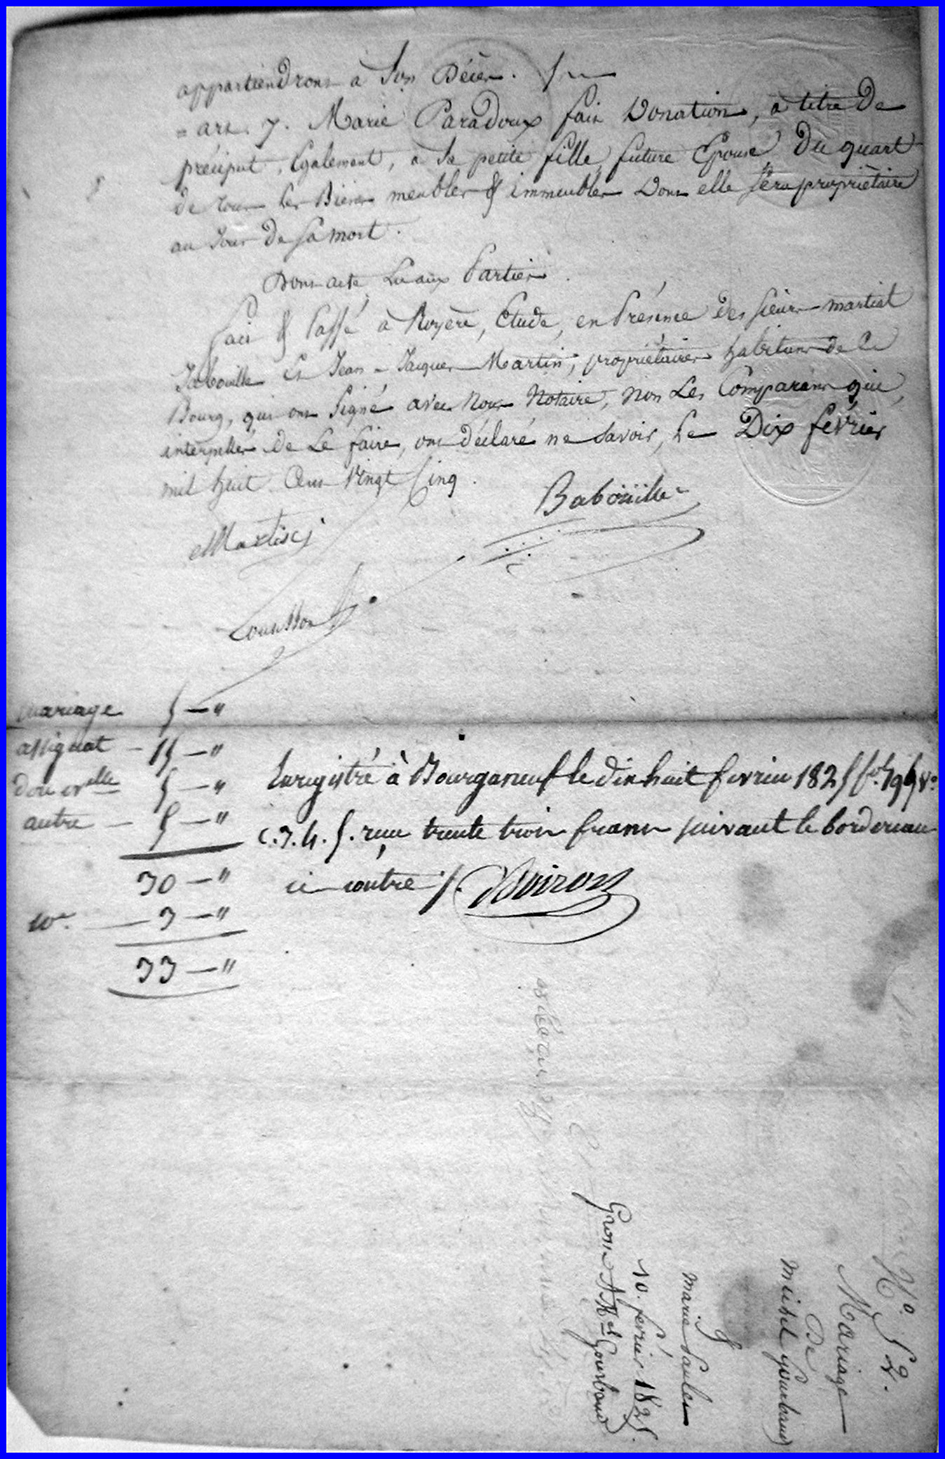 appartiendrons à Son Décès.
= art. 7. Marie Paradoux fait Donation, à titre De
préciput, Egalement, a Sa petite fille future Epouse, Du quart
de tous les Biens meubles & immeubles Dont elle Sera propriétaire
au Jour de Sa mort.
Dont acte, Lu aux Parties.
fait & Passé à Royère, Etude, en Présence des Sieurs martial
Jabouille Et Jean-Jacques Martin, propriétaires habitans de Ce
Bourg, qui ont Signé avec Nous Notaire, Non Les Comparans qui,
interpellés de Le faire, ont déclaré ne Savoir, Le Dix février
mil huit Cent Vingt Cinq.
Babouille
Martin j
mariage 5 — "
assignat — 15 — "
don évelle 5 — "
autre — 5 — "
30 — "
10e — 3 — "
33 — "
Enregistré à Bourganeuf le dix huit fevrier 1825 fol. 196 vo
c. 3. 4. 5. reçu trente trois francs suivant le bordereau
ci contre /. Boiron
No. 52.
Mariage
De
michel Gourbaud
&
marie
10. février 1825.
Grosse à Mel Gourbaud